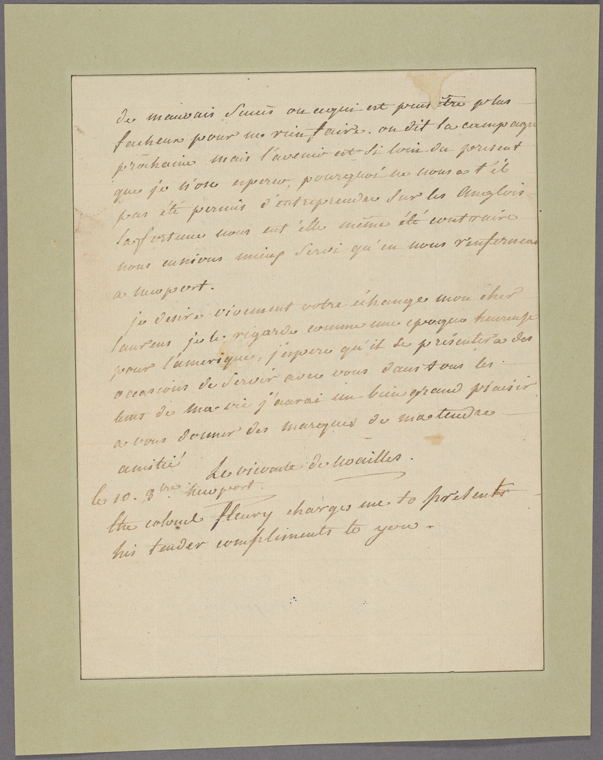 de mauvais Succès ou ce qui est peut être plus
facheux pour ne rien faire. on dit la campagne
prochaine mais l'avenir est si loin du present
que je n'ose esperer, pourquoi ne nous a t'il
pas été permis d'entreprendre sur les Anglois
la fortune nous eut elle même été contraire
nous eussions mieux servi qu'en nous renfermant
a newport.
je desire vivement votre échange mon cher
laurens je le regarde comme une epoque heureuse
pour l'amerique, j'espere qu'il se présentera des
occasions de servir avec vous dans tous les
de ma vie j'aurai un bien grand plaisir
a vous donner des marques de ma tendre
amitié
Le vicomte de noailles.
le 10. 8bre newport.
the colonel fleury charge me to present
his tender compliments to you.